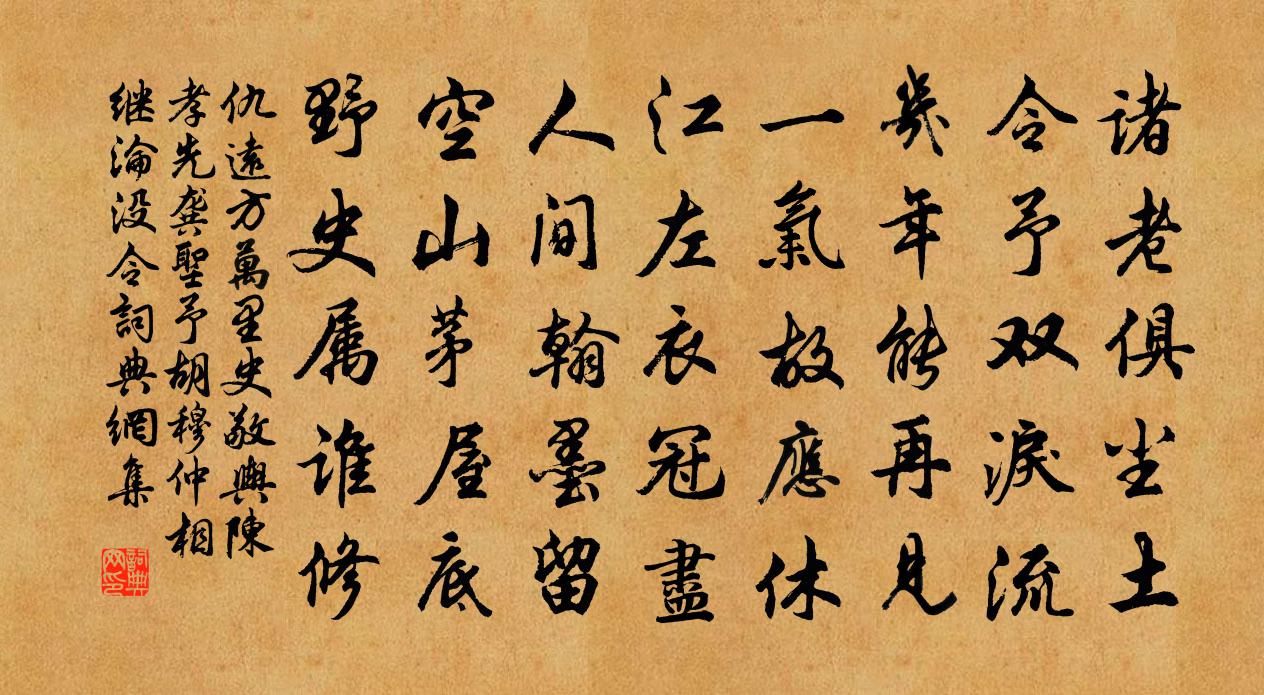 诸老俱尘土
令予双淚流
幾年能再见
一氣故應休
江左衣冠盡
人间翰墨留
空山茅屋底
野史属谁修
仇遠方萬里史敬與陳
孝先龚聖予胡穆仲相
继淪没令詞典網集